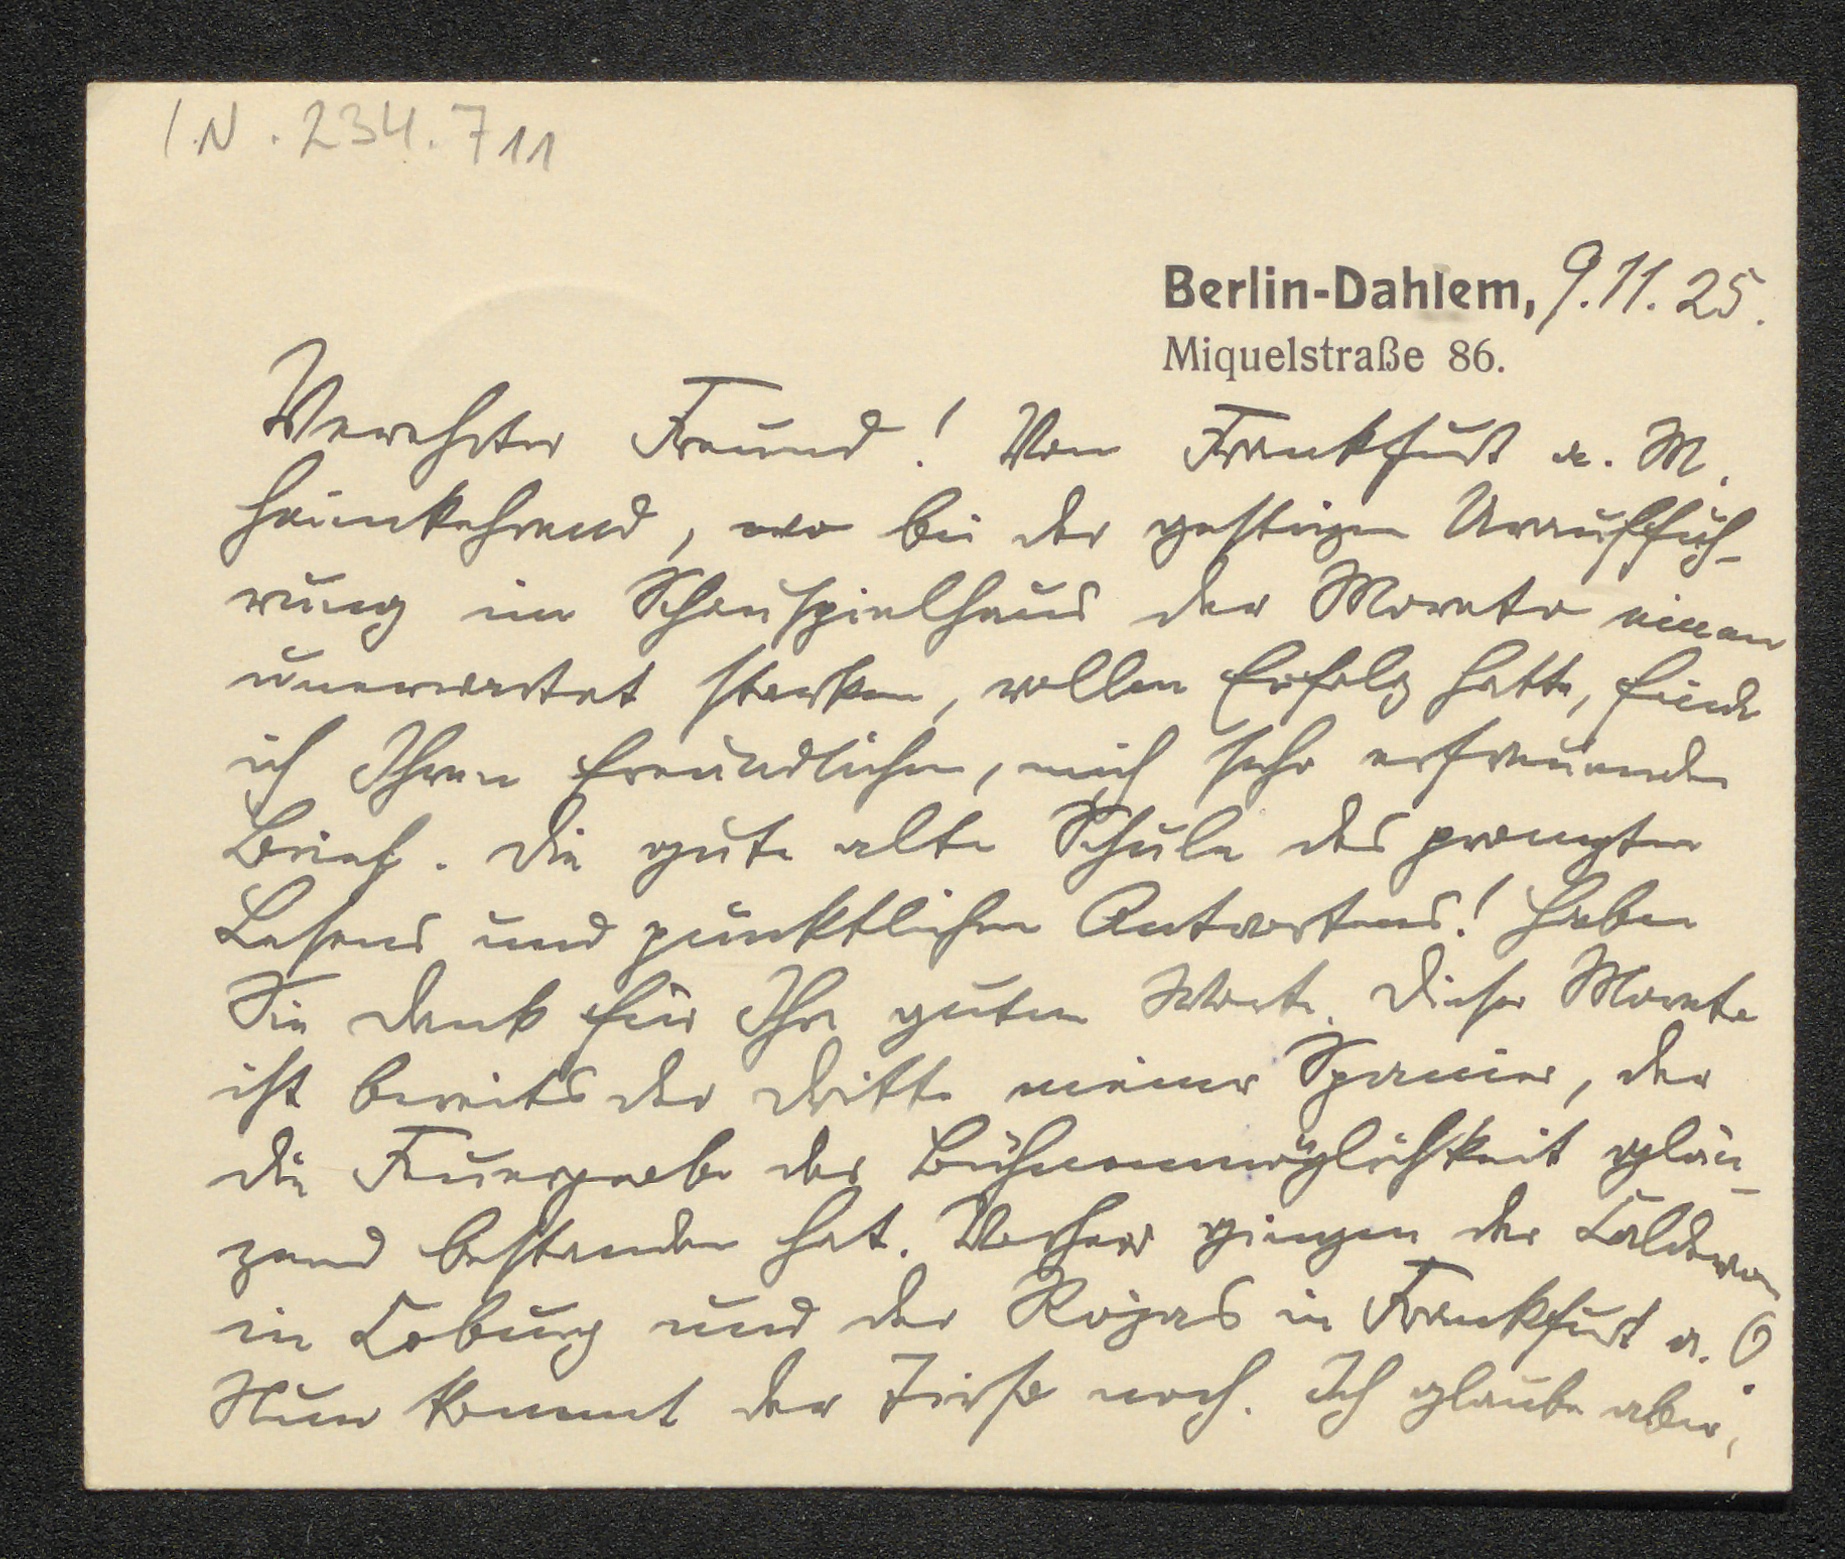 I.N. 234.711
Berlin-Dahlem, 9.11.25.
Miquelstraße 86.
Verehrter Freund! Von Frankfurt a. M.
heimkehrend, wo bei der gestrigen Urauffüh-
rung im Schauspielhaus der Moreto einen
unerwartet starken, vollen Erfolg hatte, finde
ich Ihren freundlichen, mich sehr erfreuenden
Brief. Die gute alte Schule des prompten
Lesens und pünktlichen Antwortens! Haben
Sie Dank für Ihre guten Worte. Dieser Moreto
ist bereits der dritte meiner Spanier, der
die Feuerprobe der Bühnenmöglichkeit glän-
zend bestanden hat. Vorher gingen der Calderon
in Coburg und der Rojas in Frankfurt a. O.
Nun kommt der Tirso noch. Ich glaube aber,